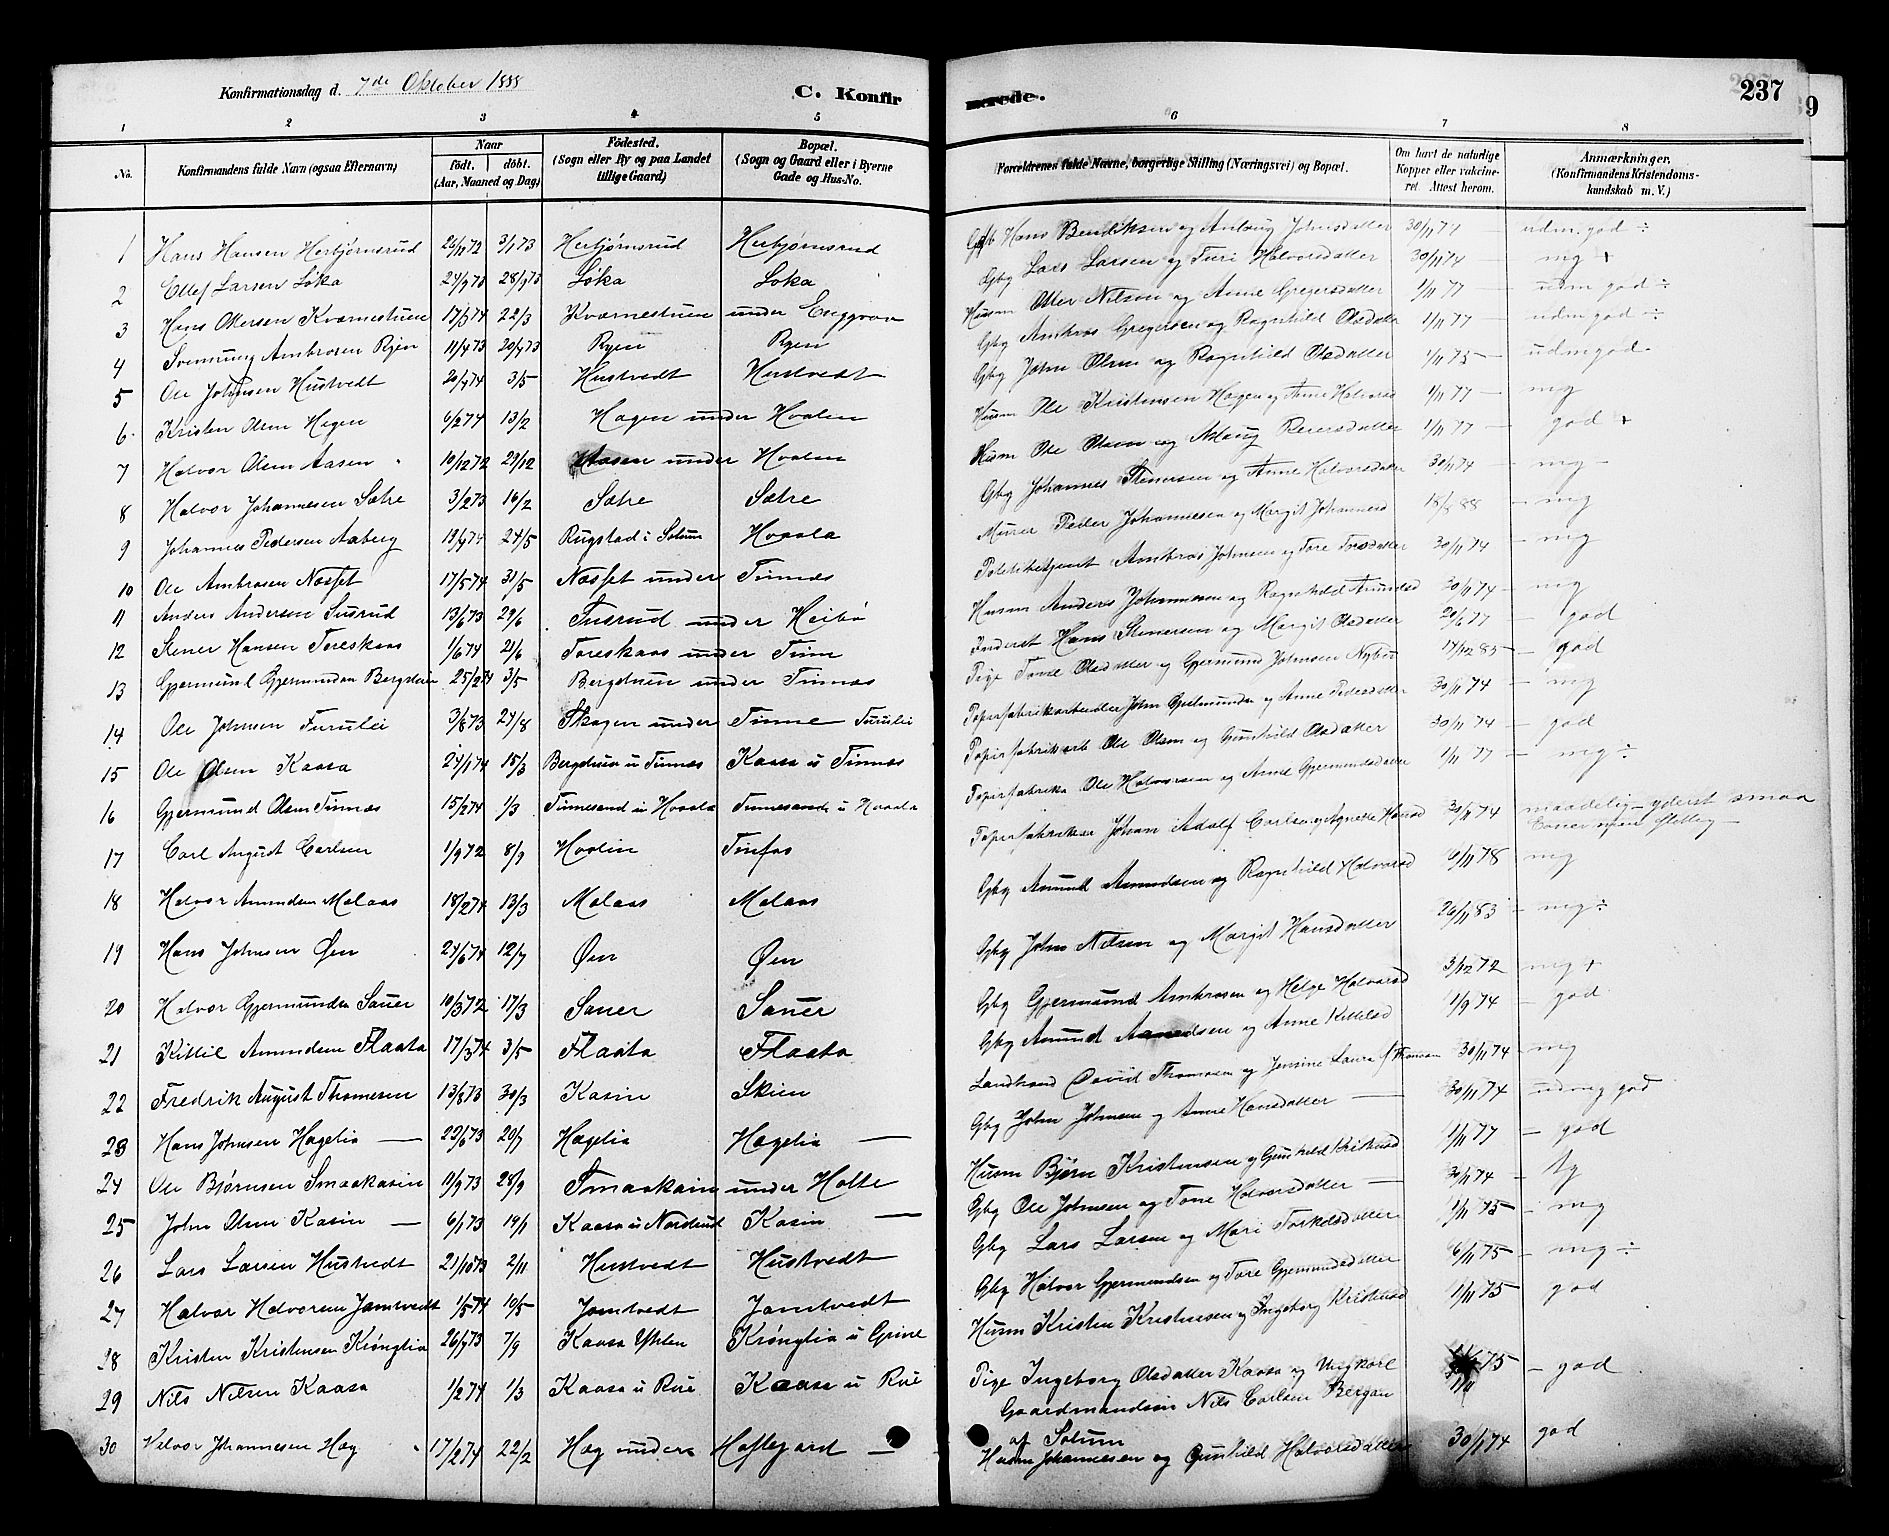 Konfirmationsdag d. 7de Oktober 1888
C. Konfirmerede.
237
1 2 3 4 5 6 7 8
No. Konfirmandens fulde Navn (ogsaa Efternavn) Naar født. døbt. (Aar, Maaned og Dag) Fødested. (Sogn eller By og paa Landet tillige Gaard) Bopæl. (Sogn og Gaard eller i Byerne Gade og Hus-No. Forældrenes fulde Navne, borgerlige Stilling (Næringsvei) og Bopæl. Om havt de naturlige Kopper eller vakcineret Attest herom. Anmærkninger. (Konfirmandens Kristendomskundskab m. V.)
1 Hans Hansen Herbjørnsrud 26/11 72 3/1 73 Herbjørnsrud Herbjørnsrud Hans Bendiksen og Anlaug Johnsdatter 30/11 74 - udm. god ÷
2 Ellef Larsen Løka 24/9 73 28/9 73 Løka Løka Gbg Lars Larsen og Turi Halvorsdatter 30/11 74 - mg +
3 Hans Ottersen Kværnestuen 17/3 74 22/3 Kværnestuen under Enggrav Husm Otter Nilsen og Anne Gregersdatter 1/11 77 - udm god ÷
4 Svenung Ambrosen Ryen 11/4 73 20/4 73 Ryen Ryen Gbg Ambros Gregersen og Ragnhild Olsdatter 1/11 77 - udm god ÷
5 Ole Johnsen Hustvedt 20/4 74 3/5 Hustvedt Hustvedt Gbg John Olsen og Ragnhild Olsdatter 1/11 75 - udm god -
6 Kristen Olsen Hagen 6/2 74 13/2 Hagen under Hoalen Husm Ole Kristensen Hagen og Anne Halvorsd 1/11 77 - mg
7 Halvor Olsen Aasen 10/12 72 29/12 Aasen under Hoalen Husm Ole Olsen og Aslaug Reiersdatter 1/11 77 - god +
8 Halvor Johannesen Sætre 3/2 73 16/2 Sætre Sætre Gbg Johannes Stenersen og Anne Halvorsdatter 30/11 74 - mg -
9 Johannes Pedersen Aaberg 19/4 74 24/5 Rugstad i Solum Hoaala Murer Peder Johannesen og Margit Johannesd 18/5 88 - mg
10 Ole Ambrosen Næsset 17/5 74 31/5 Næsset under Tinnæs Politibetjent Ambros Johnsen og Tore Torsdatter 30/11 74 - mg
11 Anders Andersen Tusrud 13/6 73 29/6 Tusrud under Heibø Husm Anders Johannesen og Ragnhild Amundsd 30/11 74 - mg
12 Stener Hansen Toreskaas 1/6 74 21/6 Toreskaas under Tinn Inderst Hans Stenersen og Margit Olsdatter 29/6 77 - god
13 Gjermund Gjermundsen Bergstuen 25/2 74 3/5 Bergstuen under Tinnæs Pige Tone Olsdatter og Gjermund Johnsen Nybu 14/12 85 - god
14 Ole Johnsen Furulii 3/8 73 24/8 Skogen under Tinne Furulii Papirfabrikarbeider John Gjermundsen og Anne Pedersdatter 30/11 74 - mg
15 Ole Olsen Kaasa 24/1 74 15/3 Bergstuen u Tinnæs Kaasa u Tinnæs Papirfabrikarb Ole Olsen og Gunhild Olsdatter 30/11 74 - god
16 Gjermund Olsen Tinnæs 15/2 74 1/3 Tinnesand u Hoaala Tinnesand u Hoaala Papirfabrika Ole Halvorsen og Anne Gjermundsdatter 1/11 77 - mg ÷
17 Carl August Carlsen 1/9 72 8/9 Hoalin Tinfos Papirfabrikar Johan Adolf Carlsen og Agnette Hansd 30/11 74 maadelig - yderst smaa Evner men flittig -
18 Halvor Amundsen Molaas 18/2 74 13/3 Molaas Molaas Gbg Amund Amundsen og Ragnhild Halvorsd 6/11 78 mg
19 Hans Johnsen Øen 24/6 74 12/7 Øen Øen Gbg John Nilsen og Margit Hansdatter 26/11 83 - mg ÷
20 Halvor Gjermundsen Sauer 10/3 72 17/3 Sauer Sauer Gbg Gjermund Ambrosen og Helge Halvorsd 3/12 72 mg +
21 Kittil Amundsen Flaata 17/3 74 3/5 Flaata Flaata Gbg Amund Amundsen og Anne Kittelsd 1/9 74 - god
22 Fredrik August Thomesen 13/8 73 30/3 Kasin Skien Landhand David Thomesen og Jensine Laura f Thomsen 30/11 74 - mg
23 Hans Johnsen Hagelia 29/6 73 20/7 Hagelia Hagelia Gbg John Johnsen og Anne Hansdatter 30/11 74 - udmg god
24 Ole Bjørnsen Smaakasin 11/9 73 28/9 Smaakasin under Holte Husm Bjørn Kristensen og Gunhild Kristensd 1/11 77 - god
25 John Olsen Kasin 6/1 73 19/1 Kaasa u Nordsud Kasin Gbg Ole Johnsen og Tone Halvorsdatter 30/11 74 - tg
26 Lars Larsen Hustvedt 21/10 73 2/11 Hustvedt Hustvedt Gbg Lars Larsen og Mari Torkildsdatter 1/11 75 - mg
27 Halvor Halvorsen Jamtvedt 1/5 74 10/5 Jamtvedt Jamtvedt Gbg Halvor Gjermundsen og Tore Gjermundsdatter 6/11 75 - mg ÷
28 Kristen Kristensen Krønglia 26/9 73 7/9 Kaasa Yxlen Krønglia u Grine Husm Kristen Kristensen og Ingeborg Kristensd 1/11 75 god
29 Nils Nilsen Kaasa 1/2 74 1/3 Kaasa u Rue Kaasa u Rue Pige Ingeborg Olsdatter Kaasa og Ungkarl 75 - god
Gaardmandssøn Nils Carlsen Bergan 1/11
af Solum
30 Halvor Johannesen Hag 17/2 74 22/2 Hag under Haftegard Husm Johannesen og Gunhild Halvorsdatter 30/1 74 god